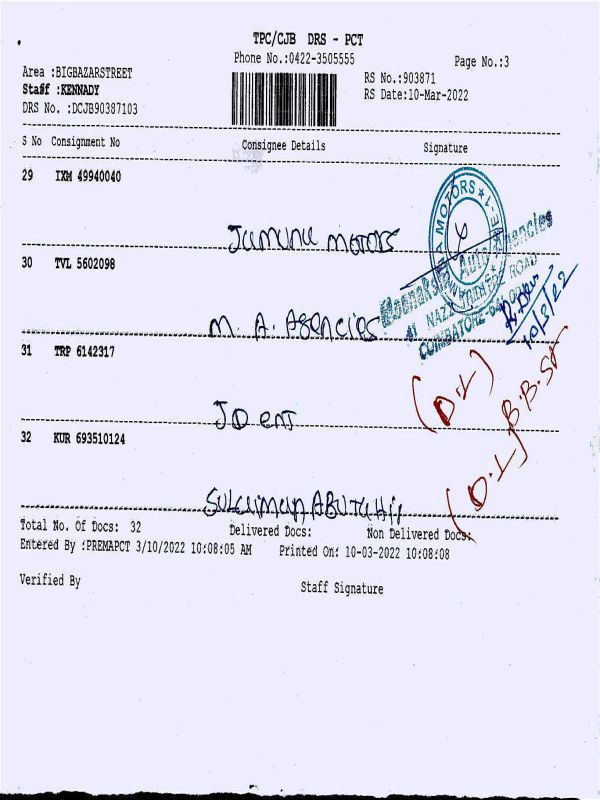 TPC/CJB DRS - PCT
Phone No.:0422-3505555
Page No.:3
Area :BIGBAZARSTREET
RS No.:903871
Staff :KENNADY
RS Date:10-Mar-2022
DRS No. :DCJB90387103
S No Consignment No Consignee Details Signature
29 IXM 49940040
MOTORS
Jamuna motors
Auto Agencies
30 TVL 5602098
ROAD
COIMBATORE
10/3/22
M. A. Agencies
31 TRP 6142317
(D.L) B.B.St
JD ent
32 KUR 693510124
(D.L)
Sulaiman
Total No. Of Docs: 32 Delivered Docs: Non Delivered Docs:
Entered By :PREMAPCT 3/10/2022 10:08:05 AM Printed On: 10-03-2022 10:08:08
Verified By
Staff Signature